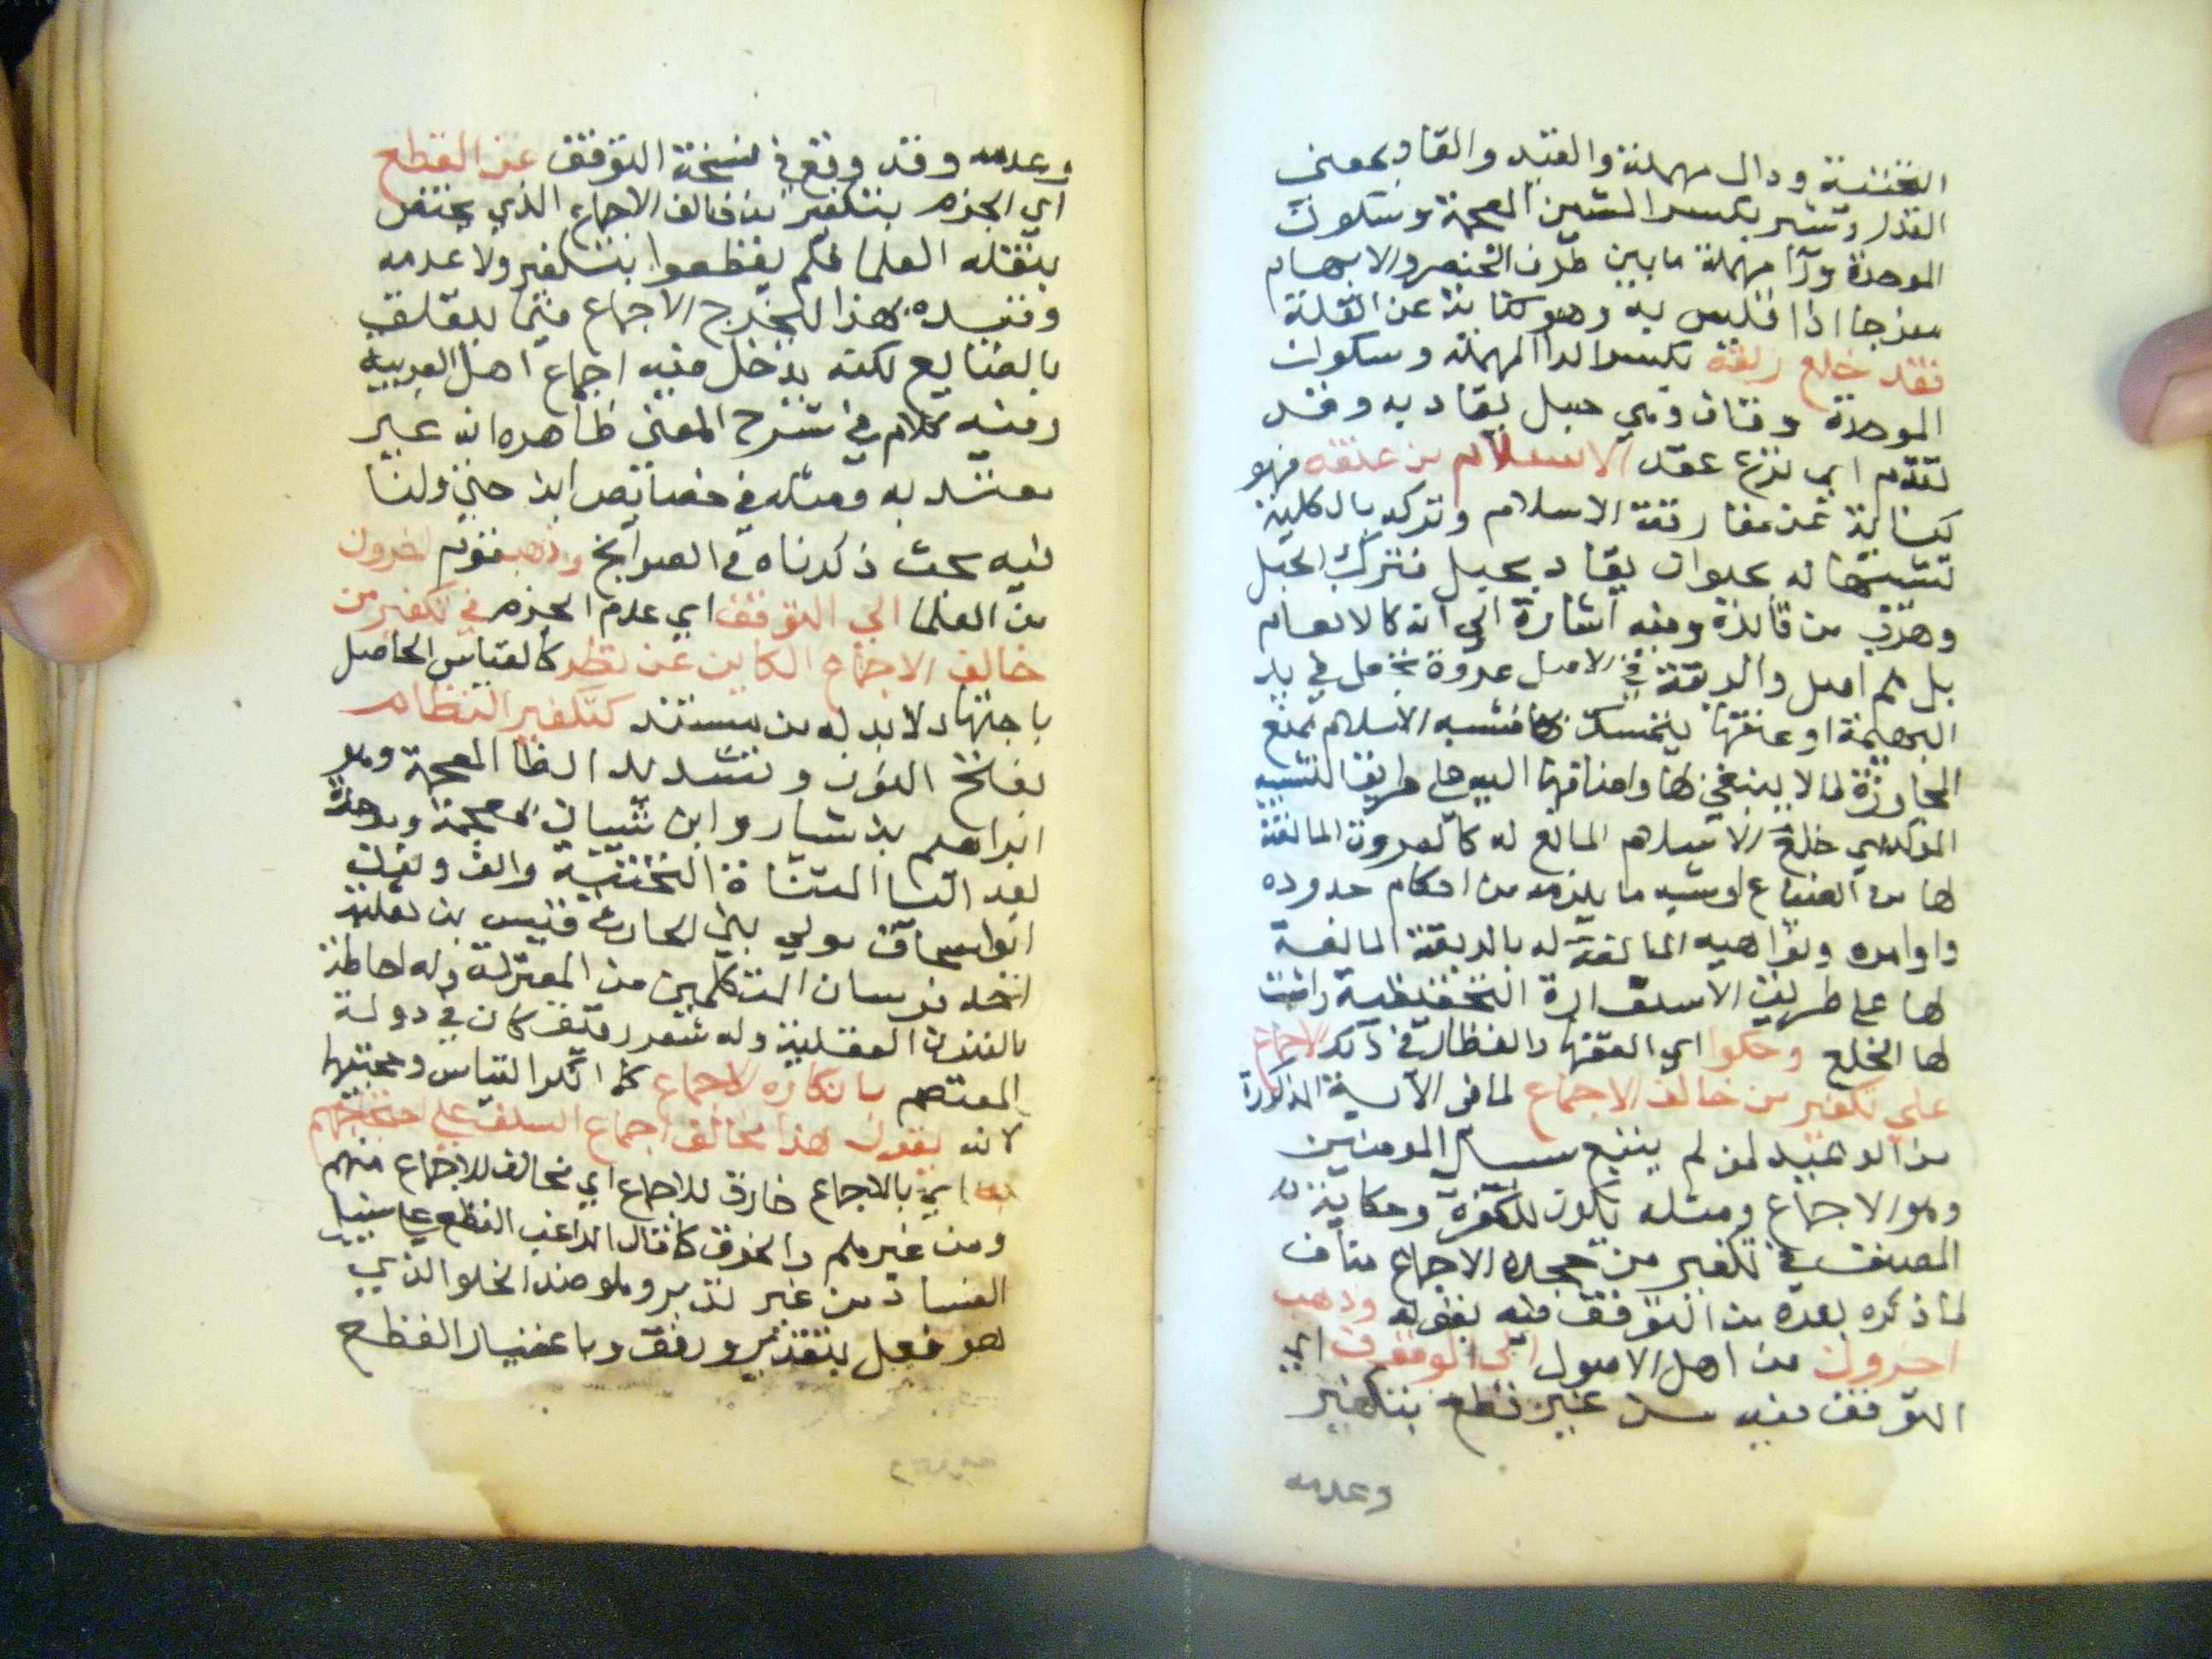 التحتية ودال مهملة والقيد والقاد بمعنى
القدر وشبر بكسر الشين المعجمة وسكون
الموحدة ورآ مهملة ما بين طرف الخنصر والابهام
منفرجا اذا قيس به وهو كناية عن القلة
فقد خلع ربقة بكسر الرا المهملة وسكون
الموحدة وقاف وهي حبل يقاد به وقد
تقدم اي نزع عقد الاسلام من عنقه فهو
كناية عن مفارقة الاسلام وتركه بالكلية
تشبيها له بحيوان يقاد بحبل فترك الحبل
وهرب من قائده وفيه اشارة الى انه كالانعام
بل هم اضل والربقة في الاصل عروة تجعل في يد
البهيمة او عنقها يتمسك بها فشبه الاسلام بمنع
المجاوزة لما لا ينبغي لها واضافتها اليه على طريق التشبيه
المؤكد اي خلع الاسلام المانع له كالعروة المانعة
لها من الضياع او شبه ما يلزمه من احكام حدوده
واوامره ونواهيه المانعة له بالربقة المانعة
لها على طريق الاستعارة التحقيقية واثبت
لها الخلع وحكوا اي الفقها والنظار في ذلك الاجماع
على تكفير من خالف الاجماع لما في الآية المذكورة
من الوعيد لمن لم يتبع سبيل المومنين
وهو الاجماع ومثله يكون للكفرة وحكاية
المصنف في تكفير من جحد الاجماع مناف
لما ذكره بعده من التوقف فيه بقوله وذهب
اخرون من اهل الاصول الى الوقوف اي
التوقف فيه من غير قطع بتكفير
وعدمه
وعدمه وقد وقع في نسخة التوقف عن القطع
اي الجزم بتكفير من خالف الاجماع الذي يختص
بنقله العلما فلم يقطعوا بتكفير ولا عدمه
وقيده بهذا ليخرج الاجماع فيما يتعلق
بالصنايع لكنه يدخل فيه اجماع اهل العربية
وفيه كلام في شرح المغنى ظاهره انه غير
معتد به ومثله في خصايص ابن جني ولنا
فيه بحث ذكرناه في السوانح وذهب قوم اخرون
من العلما الى التوقف اي عدم الجزم في تكفير من
خالف الاجماع الكاين عن نظر كالقياس الحاصل
باجتهاد لا بد له من مستند كتكفير النظام
بفتح النون وتشديد الظا المعجمة وهو
ابراهيم بن سيار وابن شيبان بمعجمة وموحدة
بعد اليا المثناة التحتية والف ونون
ابو اسحاق مولى بني الحارث قيس بن ثعلبة
احد فرسان المتكلمين من المعتزلة وله احاطة
بالفنون العقلية وله شعر رقيق كان في دولة
المعتصم بانكاره الاجماع كما انكر القياس وحجيتها
لانه بقوله هذا مخالف اجماع السلف على احتجاجهم
به اي بالاجماع خارق للاجماع اي مخالف للاجماع منهم
ومن غيرهم والخرق كما قال الراغب القطع على سبيل
الفساد من غير تدبر وهو ضد الخلق الذي
هو فعل بتقدير ورفق وباعتبار القطع